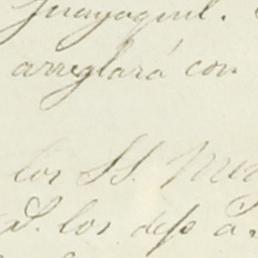 Guayaquil.
arreglará con
los SS.
S. los